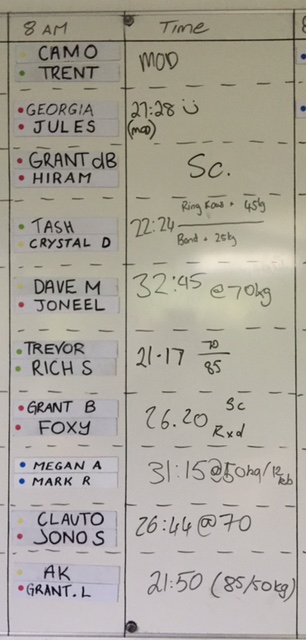 8 AM Time
CAMO
TRENT
MOD
GEORGIA
JULES
27:28 ü
(mod)
GRANT dB
HIRAM
Sc.
TASH
CRYSTAL D
22:24
Ring Rows + 45kg
Band + 25kg
DAVE M
JONEEL
32:45 @70kg
TREVOR
RICH S
21.17 70
85
GRANT B
FOXY
26.20 Sc
Rxd
MEGAN A
MARK R
31:15@50kg/12kb
CLAUTO
JONO S
26:44@70
AK
GRANT.L
21:50 (85/50kg)